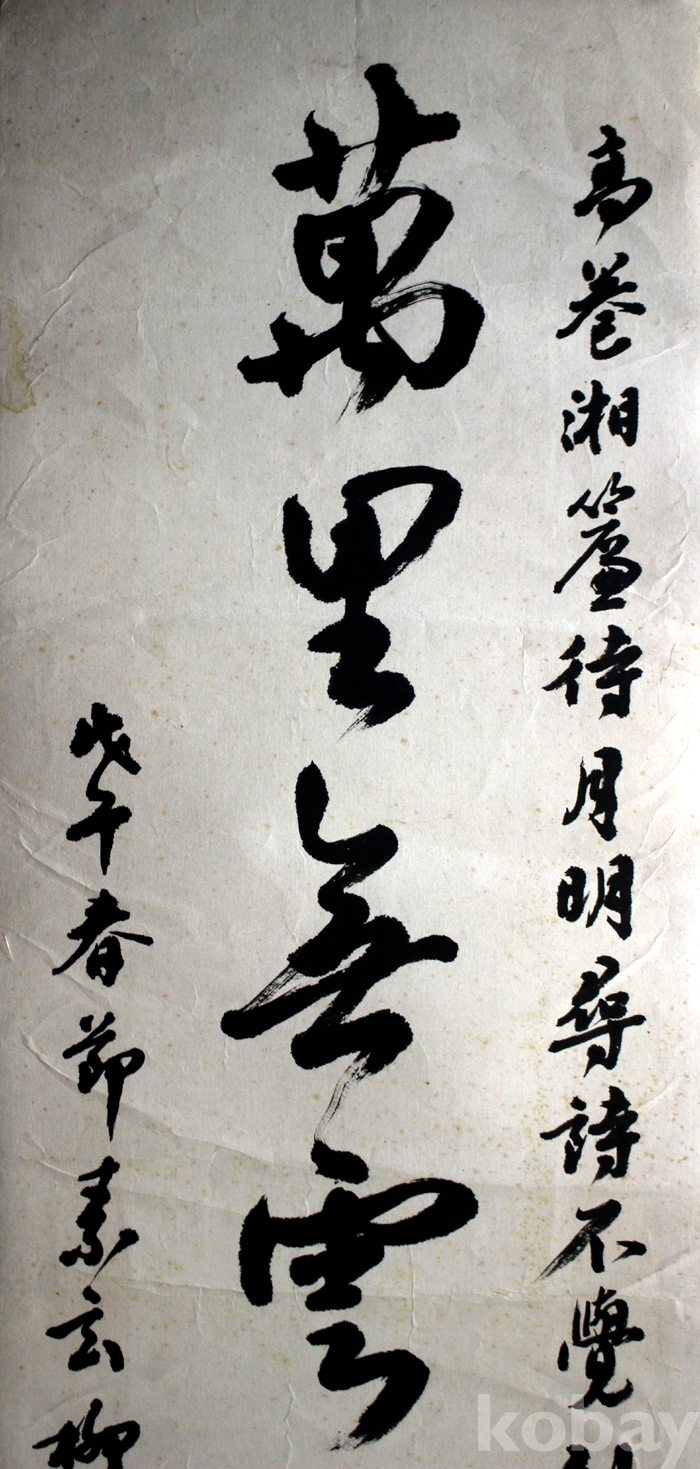 高卷湘簾待月明尋詩不覺
萬里無雲
戊午春節素玄柳
kobay